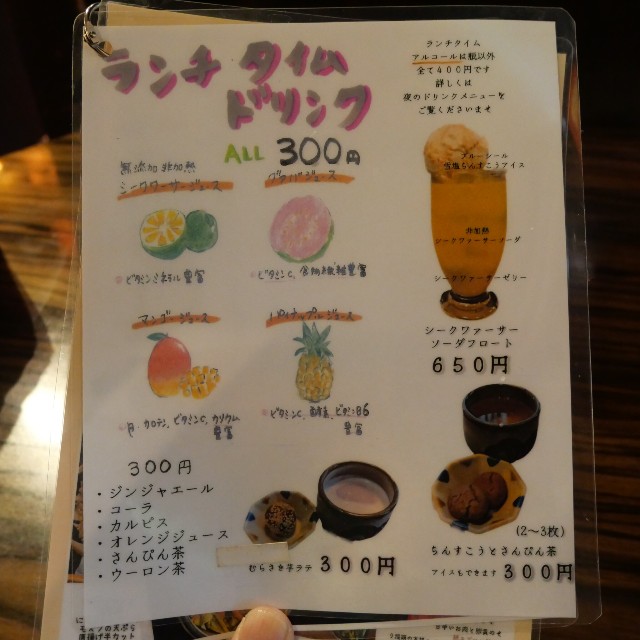 ランチ タイム
ドリンク
ALL 300円
無添加 非加熱
シークワーサージュース
ビタミン ミネラル 豊富
グァバジュース
ビタミンC、食物繊維豊富
マンゴージュース
β カロテン、ビタミンC、カリウム
豊富
パイナップルジュース
ビタミンC、酵素、ビタミンB6
豊富
300円
・ジンジャエール
・コーラ
・カルピス
・オレンジジュース
・さんぴん茶
・ウーロン茶
むらさき芋ラテ 300円
ランチタイム
アルコールは瓶以外
全て400円です
詳しくは
夜のドリンクメニューを
ご覧くださいませ
ブルーシール
塩ちんすこうアイス
非加熱
シークヮァーサーソーダ
シークヮァーサーゼリー
シークヮァーサー
ソーダフロート
650円
(2~3枚)
ちんすこうとさんぴん茶
アイスもできます 300円